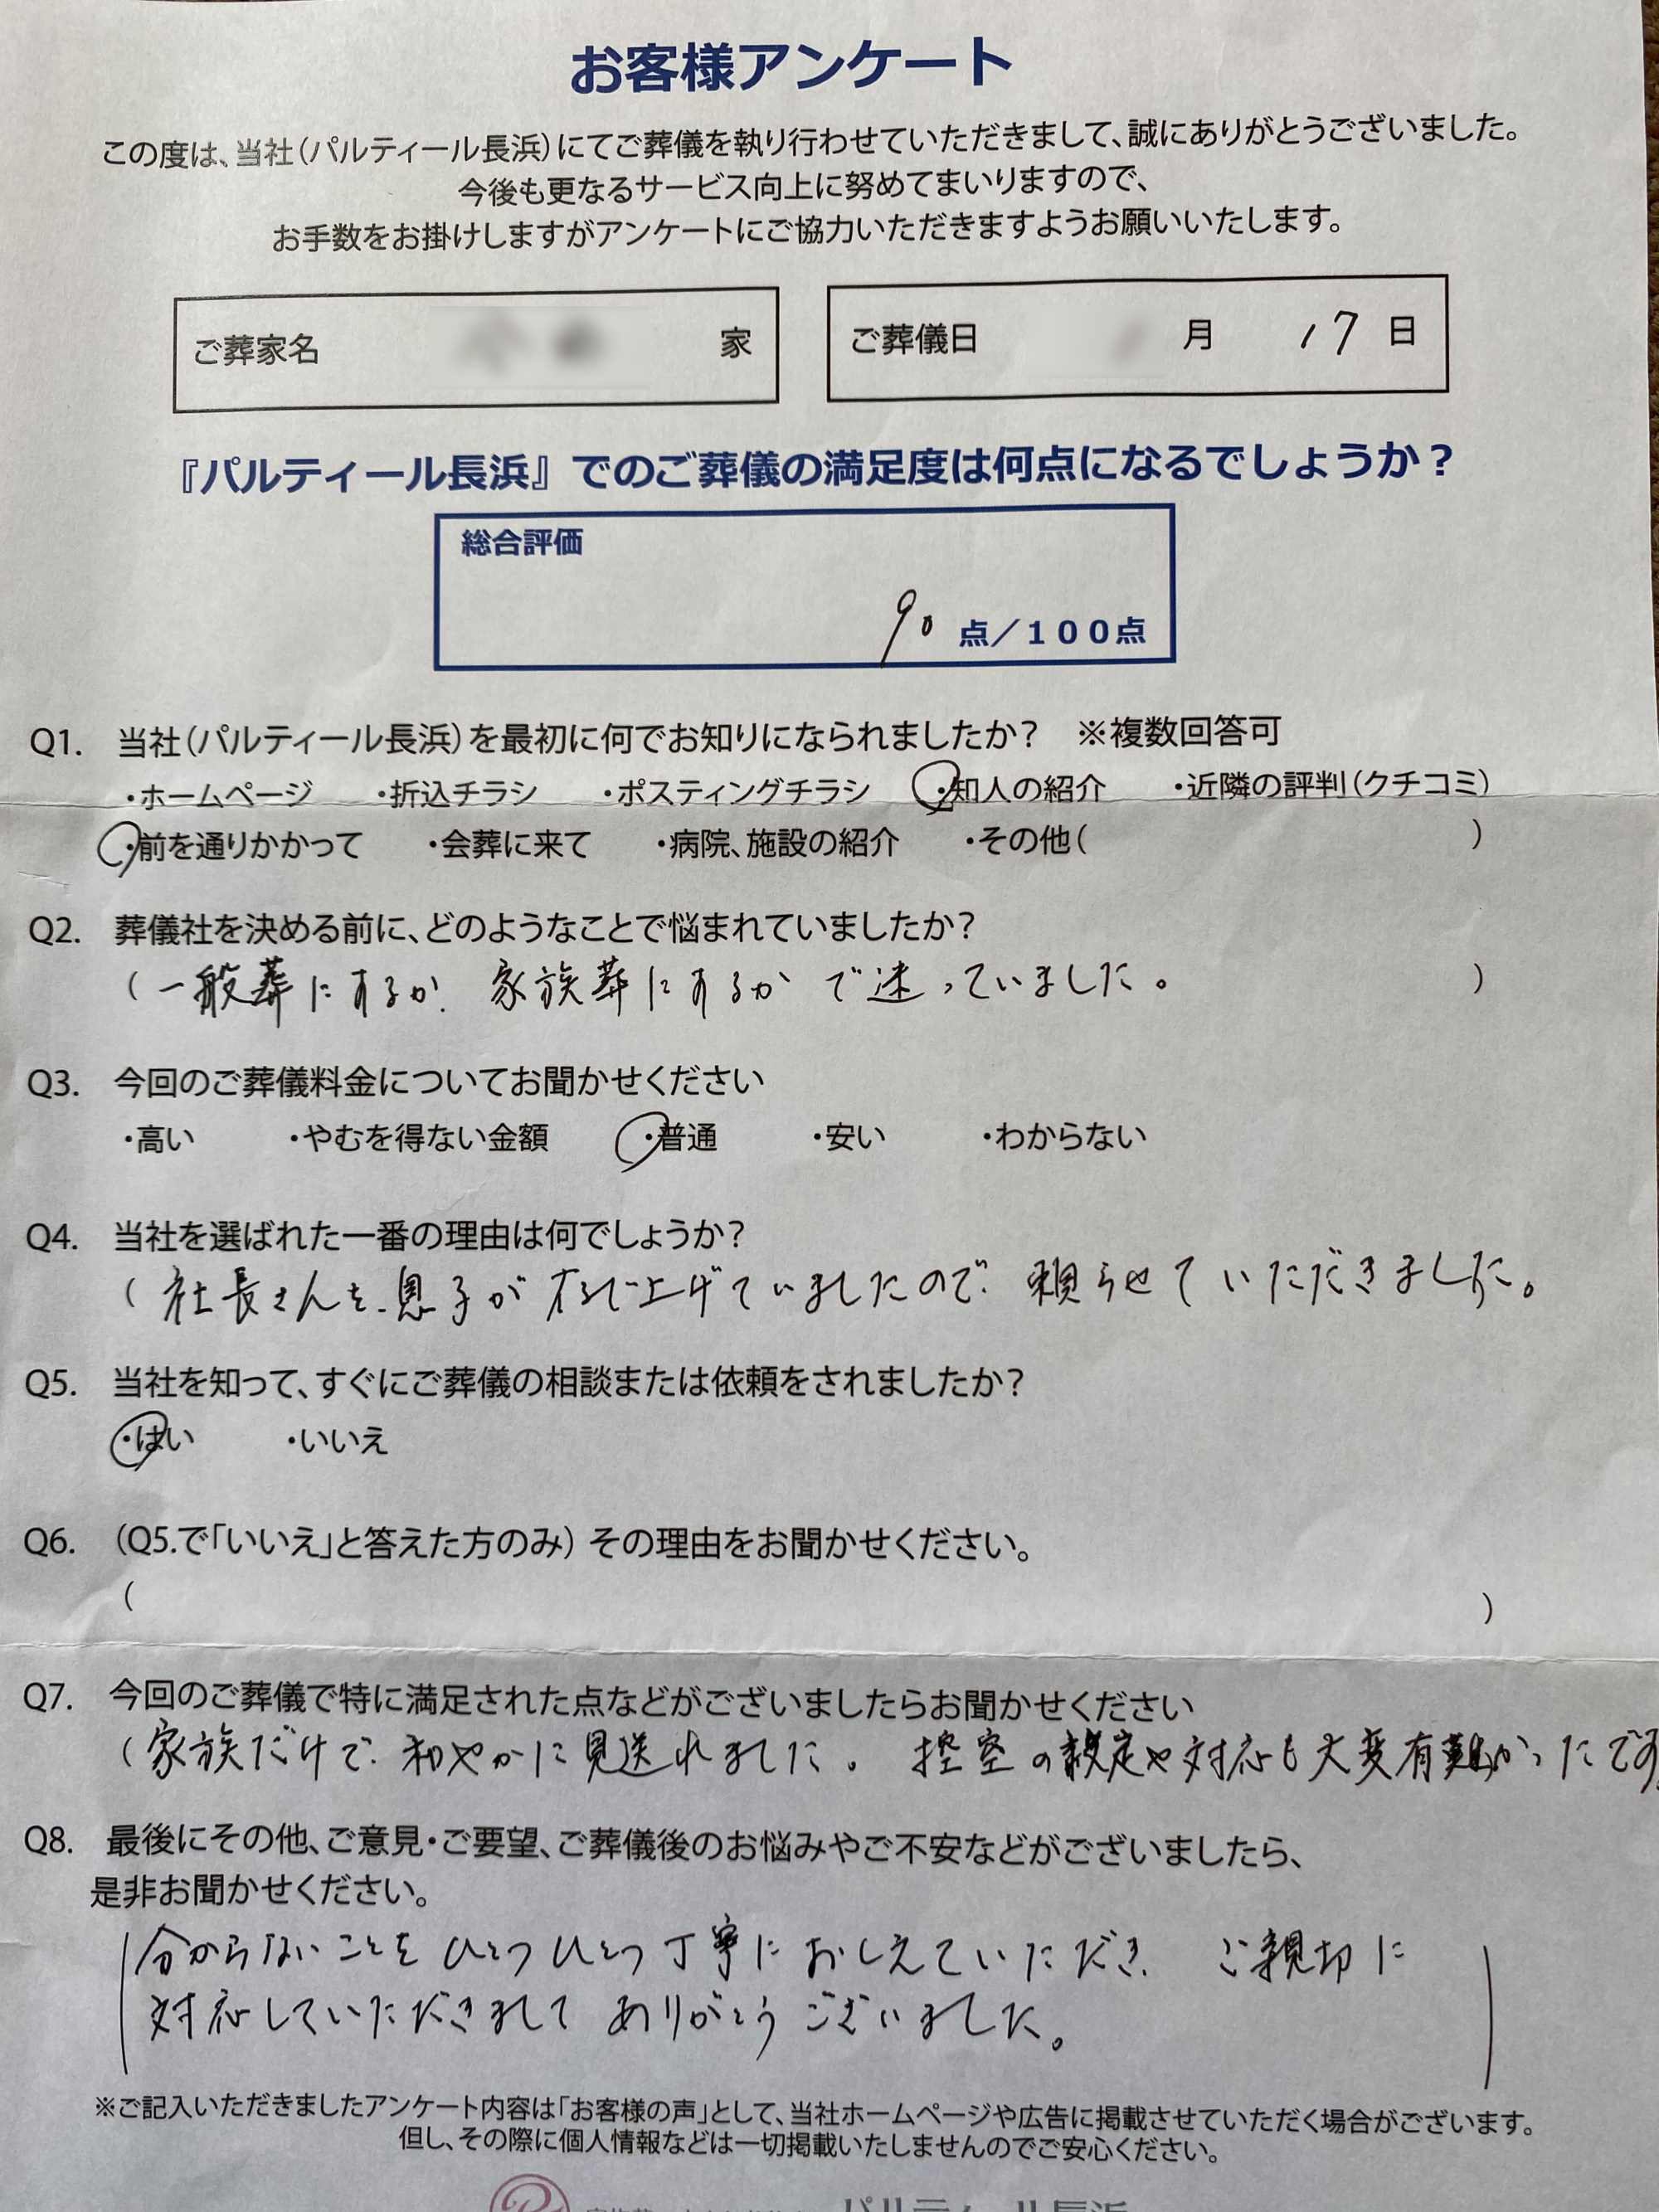 お客様アンケート
この度は、当社(パルティール長浜)にてご葬儀を執り行わせていただきまして、誠にありがとうございました。
今後も更なるサービス向上に努めてまいりますので、
お手数をお掛けしますがアンケートにご協力いただきますようお願いいたします。
ご葬家名 家 ご葬儀日 月 17日
『パルティール長浜』でのご葬儀の満足度は何点になるでしょうか?
総合評価
90 点/100点
Q1. 当社(パルティール長浜)を最初に何でお知りになられましたか? ※複数回答可
・ホームページ ・折込チラシ ・ポスティングチラシ ・知人の紹介 ・近隣の評判(クチコミ)
・前を通りかかって ・会葬に来て ・病院、施設の紹介 ・その他( )
Q2. 葬儀社を決める前に、どのようなことで悩まれていましたか?
(一般葬にするか、家族葬にするかで迷っていました。 )
Q3. 今回のご葬儀料金についてお聞かせください
・高い ・やむを得ない金額 ・普通 ・安い ・わからない
Q4. 当社を選ばれた一番の理由は何でしょうか?
(社長さんを、息子が 上げていましたので、頼らせていただきました。
Q5. 当社を知って、すぐにご葬儀の相談または依頼をされましたか?
・はい ・いいえ
Q6. (Q5.で「いいえ」と答えた方のみ) その理由をお聞かせください。
( )
Q7. 今回のご葬儀で特に満足された点などがございましたらお聞かせください
(家族だけで、和やかに見送れました。控室の設定や対応も大変有難かったです。
Q8. 最後にその他、ご意見・ご要望、ご葬儀後のお悩みやご不安などがございましたら、
是非お聞かせください。
分からないことをひとつひとつ丁寧におしえていただき、ご親切に
対応していただきまして ありがとうございました。
※ご記入いただきましたアンケート内容は「お客様の声」として、当社ホームページや広告に掲載させていただく場合がございます。
但し、その際に個人情報などは一切掲載いたしませんのでご安心ください。
パルティール長浜